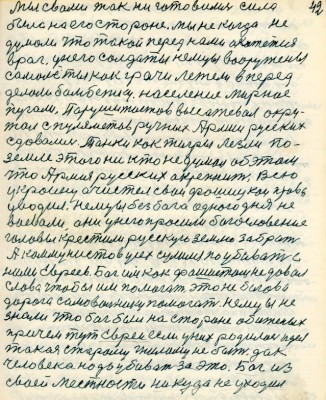 42
Мы с вами так ни готовились сила
была на его стороне. мы некогда не
думали что такой перед нами окажется
враг, у него солдаты немцы вооружены
самолеты как грачи летели вперед
делали бомбежку. население мирное
пугали. Парушитастов высажевал окру-
жал с пулеметов ручных Армии русских
сдовали. Танки как тигры лезли по-
земле этого ни кто не думал об этом
что Армия русских окрепнит. Всю
украену очистел свои фрошискую кровь
уводил. Немцы без бога одного дня не
воевали, они у него просили богословение
головы крестили русскую землю забрат
А коммунистов усех сумели поубивать с
ними Евреев. Бог им как фашистам не довал
слова чтобы им помогат это не богова
дорога самовольнику помогат. Немцы не
знали что бог был на стороне обиженых
причем тут Евреи если у них родилая идея
такая старому жилищу не быть. дак
человека надо убиват за это. Бог из
своей местности никуда не уходил